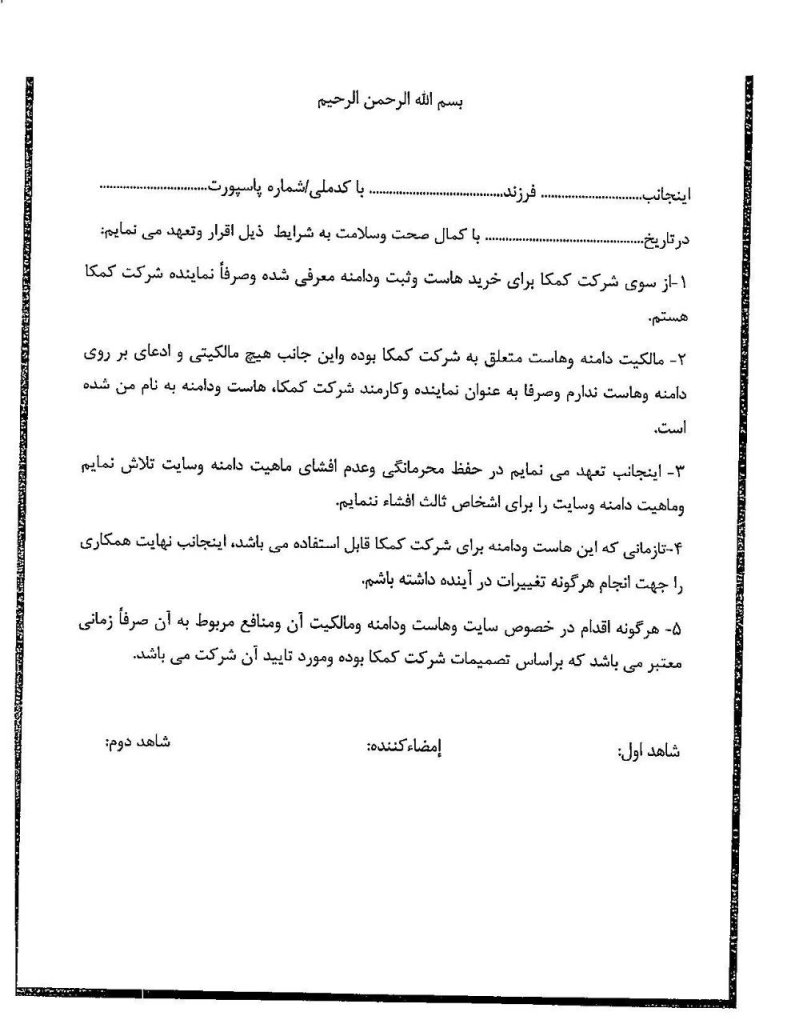 بسم الله الرحمن الرحیم
اینجانب............................ فرزند...................................... با کدملی/شماره پاسپورت..............................
درتاریخ............................................. با کمال صحت وسلامت به شرایط ذیل اقرار وتعهد می نمایم:
۱-از سوی شرکت کمکا برای خرید هاست وثبت ودامنه معرفی شده وصرفاً نماینده شرکت کمکا
هستم.
۲- مالکیت دامنه وهاست متعلق به شرکت کمکا بوده واین جانب هیچ مالکیتی و ادعای بر روی
دامنه وهاست ندارم وصرفا به عنوان نماینده وکارمند شرکت کمکا، هاست ودامنه به نام من شده
است.
۳- اینجانب تعهد می نمایم در حفظ محرمانگی وعدم افشای ماهیت دامنه وسایت تلاش نمایم
وماهیت دامنه وسایت را برای اشخاص ثالث افشاء ننمایم.
۴-تازمانی که این هاست ودامنه برای شرکت کمکا قابل استفاده می باشد، اینجانب نهایت همکاری
را جهت انجام هرگونه تغییرات در آینده داشته باشم.
۵- هرگونه اقدام در خصوص سایت وهاست ودامنه ومالکیت آن ومنافع مربوط به آن صرفاً زمانی
معتبر می باشد که براساس تصمیمات شرکت کمکا بوده ومورد تایید آن شرکت می باشد.
شاهد اول: إمضاءکننده: شاهد دوم: